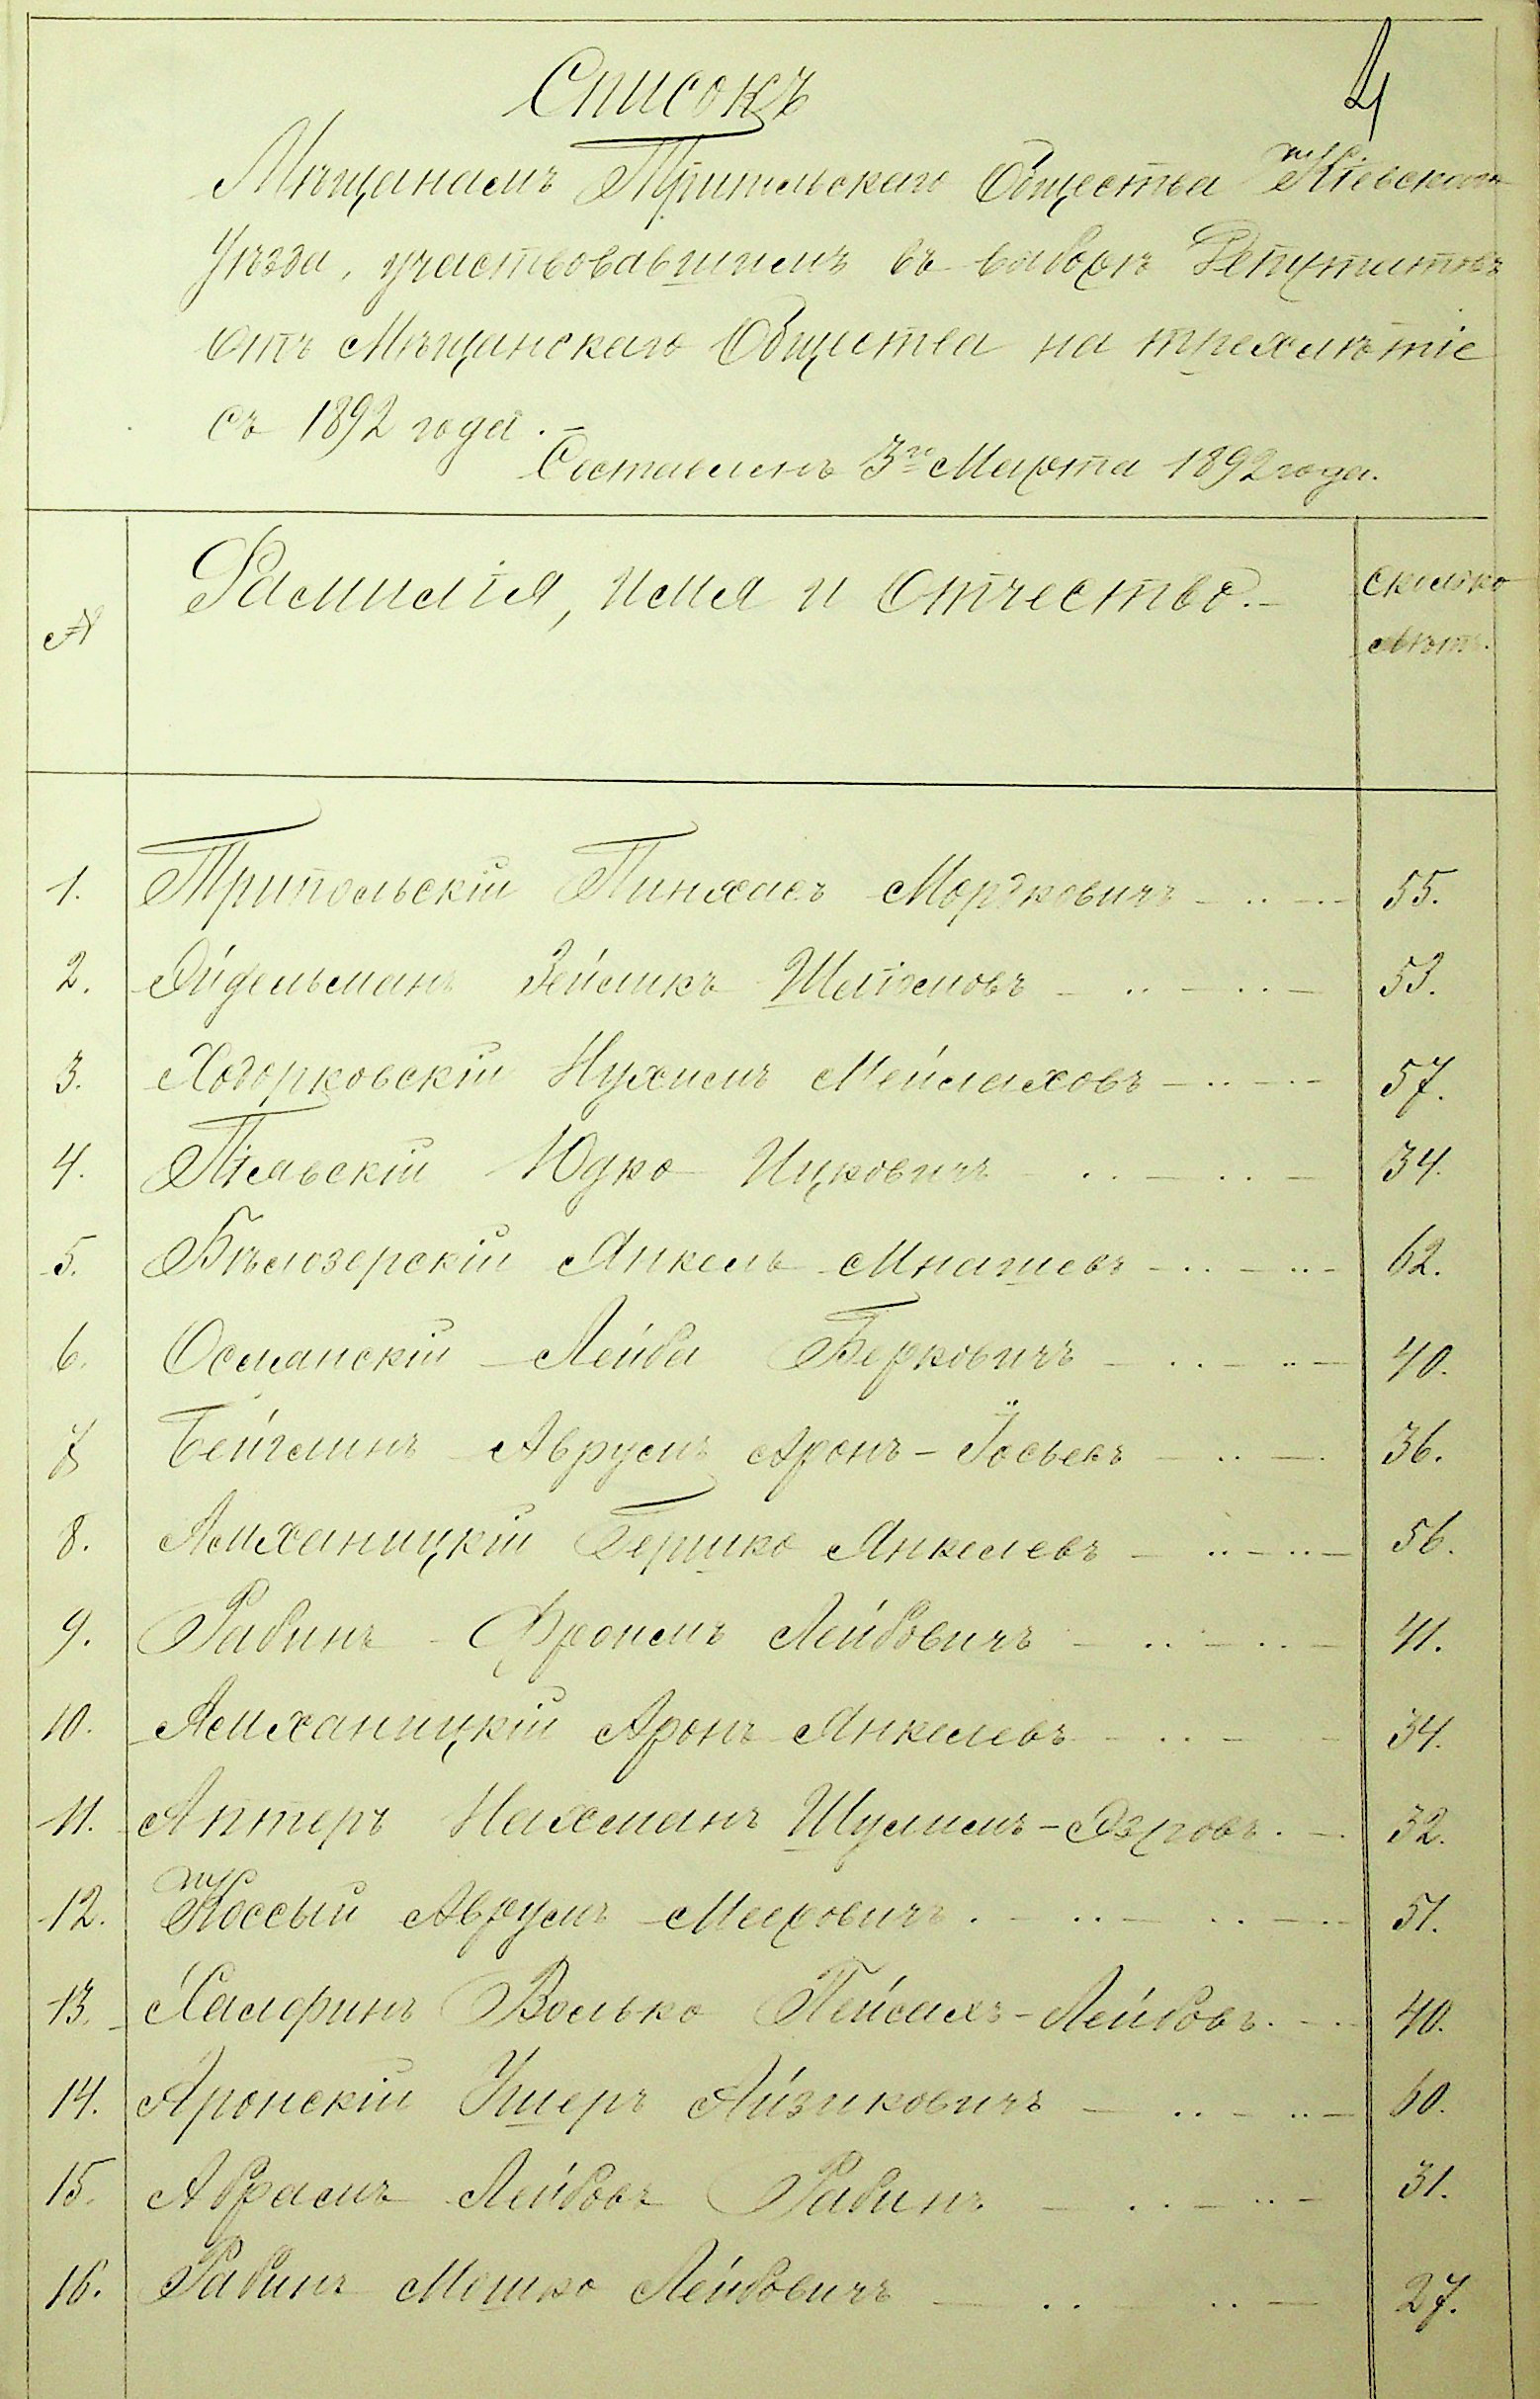 4
Списокъ
Мѣщанамъ Трипольскаго Общества Кіевскаго
Уѣзда, участвовавшимъ въ выборѣ Депутатовъ
отъ Мѣщанскаго Общества на трехлѣтіе
съ 1892 года.-
Составленъ 3го Марта 1892 года.
№ Фамилія, имя и отчество.- сколько лѣтъ.
1. Трипольскій Пинхасъ Мордковичъ 55.
2. Эйдельманъ Зейликъ Шліомовъ 53.
3. Ходорковскій Нухимъ Мейлаховъ 57.
4. Пільскій Юдко Ицковичъ 34.
5. Бѣлозерскій Янкель Мнашевъ 62.
6. Османскій Лейба Берковичъ 40.
7 Бейглинъ Аврумъ Аронъ-Іосьевъ 36.
8. Ямханицкій Бершко Янкелевъ 56.
9. Рабинъ Фроимъ Лейбовичъ 41.
10. Ямханицкій Аронъ Янкелевъ 34.
11. Аптеръ Нахманъ Шулимъ-Эзровъ. 32.
12. Коссый Аврумъ Мееровичъ. 51.
13. Халфинъ Волько Пейсахъ-Лейбовъ. 40.
14. Аронскій Ушеръ Айзиковичъ 60.
15. Абрамъ Лейбовъ Рабинъ 31.
16. Рабинъ Мошко Лейбовичъ 27.